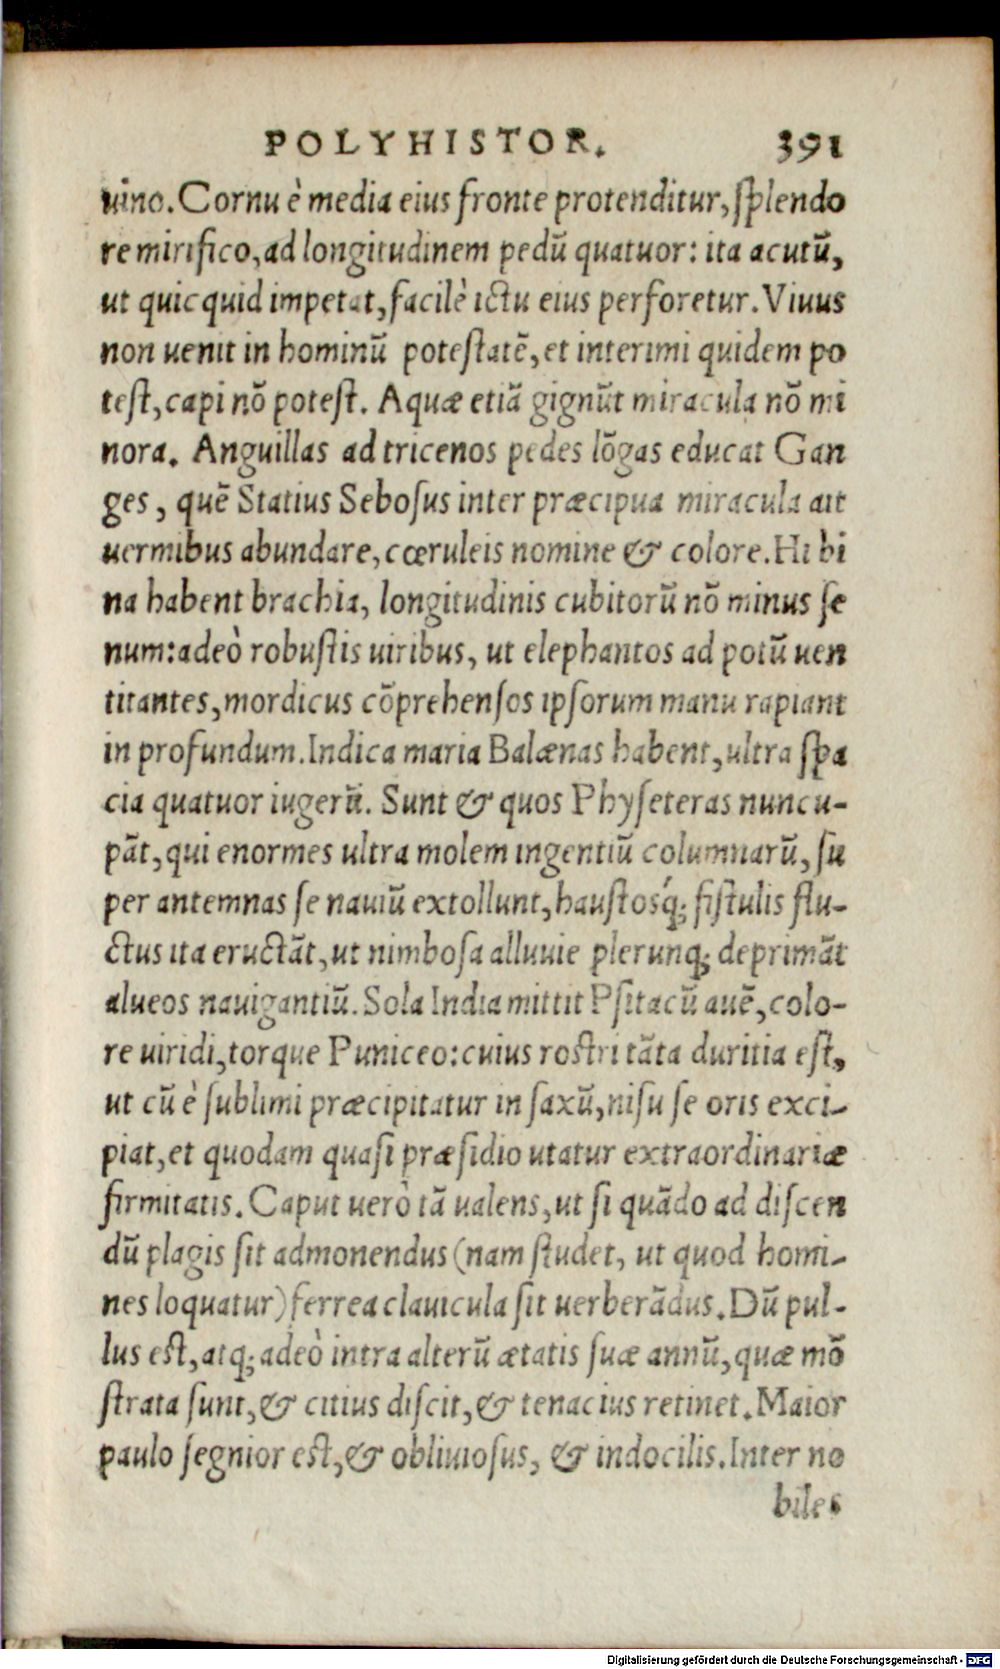 POLYHISTOR. 391
uino. Cornu è media eius fronte protenditur, ſplendo
re mirifico, ad longitudinem pedū quatuor: ita acutū,
ut quicquid impetat, facilè ictu eius perforetur. Viuus
non uenit in hominū poteſtatē, et interimi quidem po
teſt, capi nō poteſt. Aquæ etiā gignūt miracula nō mi
nora. Anguillas ad tricenos pedes lōgas educat Gan
ges, quē Statius Seboſus inter præcipua miracula ait
uermibus abundare, cœruleis nomine & colore. Hi bi
na habent brachia, longitudinis cubitorū nō minus ſe
num: adeò robuſtis uiribus, ut elephantos ad potū uen
titantes, mordicus cōprehenſos ipſorum manu rapiant
in profundum. Indica maria Balænas habent, ultra ſpa
cia quatuor iugerū. Sunt & quos Phyſeteras nuncu-
pāt, qui enormes ultra molem ingentiū columnarū, ſu
per antemnas ſe nauiū extollunt, hauſtosq́; fiſtulis flu-
ctus ita eructāt, ut nimboſa alluuie plerunq; deprimāt
alueos nauigantiū. Sola India mittit Pſitacū auē, colo-
re uiridi, torque Puniceo: cuius roſtri tāta duritia eſt,
ut cū è ſublimi præcipitatur in ſaxū, niſu ſe oris exci-
piat, et quodam quaſi præſidio utatur extraordinariæ
firmitatis. Caput uerò tā ualens, ut ſi quādo ad diſcen
dū plagis ſit admonendus (nam ſtudet, ut quod homi-
nes loquatur) ferrea clauicula ſit uerberādus. Dū pul-
lus eſt, atq; adeò intra alterū ætatis ſuæ annū, quæ mō
ſtrata ſunt, & citius diſcit, & tenacius retinet. Maior
paulo ſegnior eſt, & obliuioſus, & indocilis. Inter no
biles
Digitalisierung gefördert durch die Deutsche Forschungsgemeinschaft - DFG